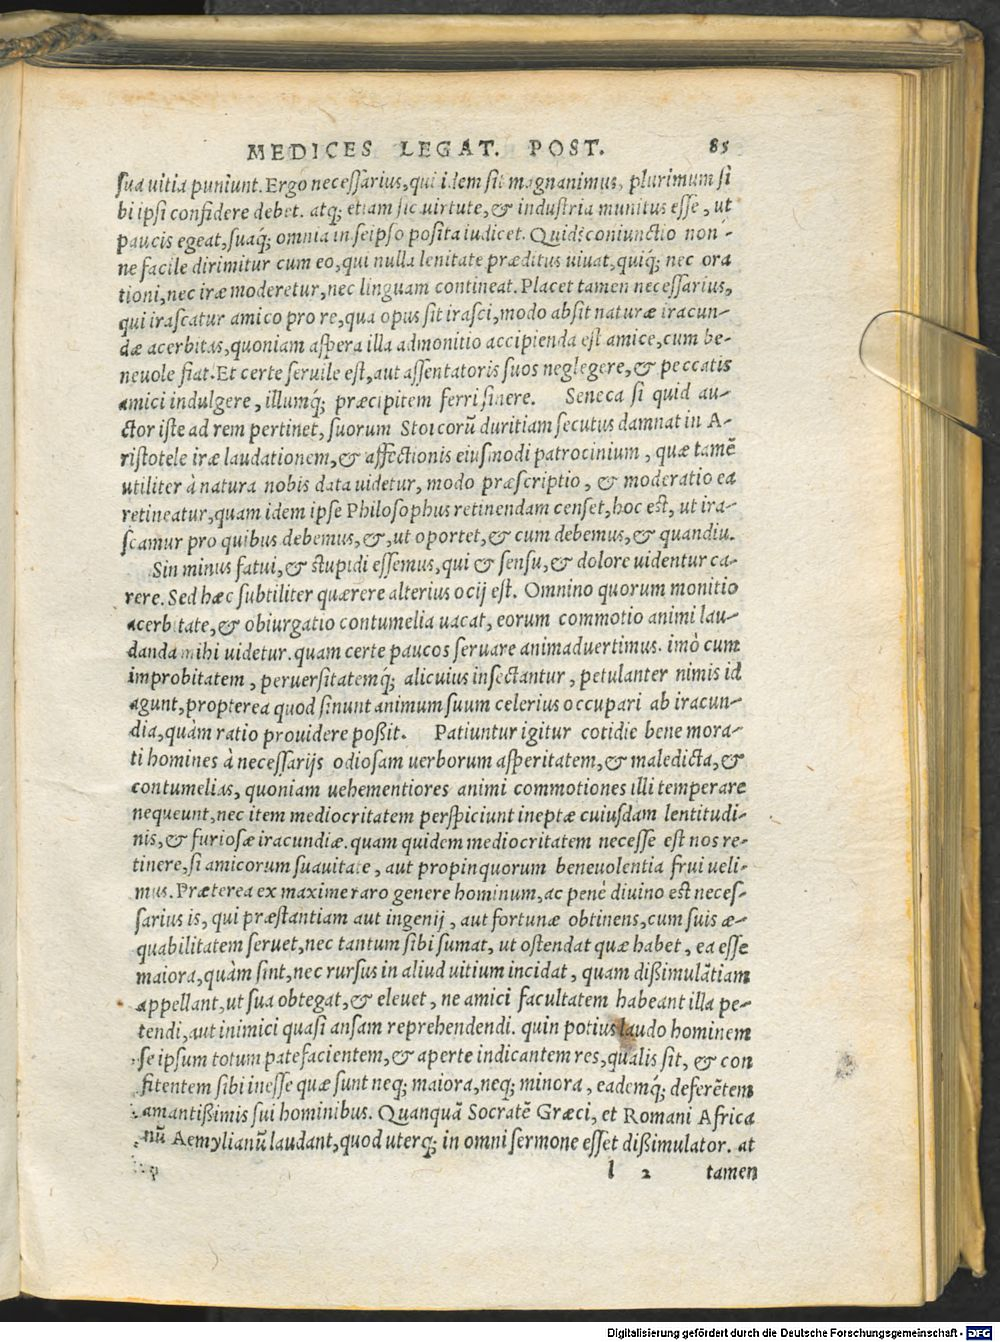 MEDICES LEGAT. POST. 85
sua uitia puniunt. Ergo necessarius, qui idem sit magnanimus, plurimum si
bi ipsi confidere debet. atq; etiam sic uirtute, & industria munitus esse, ut
paucis egeat, suaq́; omnia in seipso posita iudicet. Quid? coniunctio non-
ne facile dirimitur cum eo, qui nulla lenitate præditus uiuat, quiq́; nec ora
tioni, nec iræ moderetur, nec linguam contineat. Placet tamen necessarius,
qui irascatur amico pro re, qua opus sit irasci, modo absit naturæ iracun-
dæ acerbitas, quoniam aspera illa admonitio accipienda est amice, cum be-
neuole fiat. Et certe seruile est, aut assentatoris suos neglegere, & peccatis
amici indulgere, illumq́; præcipitem ferri sinere. Seneca si quid au-
ctor iste ad rem pertinet, suorum Stoicorũ duritiam secutus damnat in A-
ristotele iræ laudationem, & affectionis eiusmodi patrocinium, quæ tamẽ
utiliter à natura nobis data uidetur, modo præscriptio, & moderatio ea
retineatur, quam idem ipse Philosophus retinendam censet, hoc est, ut ira-
scamur pro quibus debemus, &, ut oportet, & cum debemus, & quandiu.
Sin minus fatui, & stupidi essemus, qui & sensu, & dolore uidentur ca-
rere. Sed hæc subtiliter quærere alterius ocij est. Omnino quorum monitio
acerbitate, & obiurgatio contumelia uacat, eorum commotio animi lau-
danda mihi uidetur. quam certe paucos seruare animaduertimus. imò cum
improbitatem, peruersitatemq́; alicuius insectantur, petulanter nimis id
agunt, propterea quod sinunt animum suum celerius occupari ab iracun-
dia, quàm ratio prouidere poßit. Patiuntur igitur cotidie bene mora-
ti homines à necessarijs odiosam uerborum asperitatem, & maledicta, &
contumelias, quoniam uehementiores animi commotiones illi temperare
nequeunt, nec item mediocritatem perspiciunt ineptæ cuiusdam lentitudi-
nis, & furiosæ iracundiæ. quam quidem mediocritatem necesse est nos re-
tinere, si amicorum suauitate, aut propinquorum beneuolentia frui ueli-
mus. Præterea ex maxime raro genere hominum, ac penè diuino est neces-
sarius is, qui præstantiam aut ingenij, aut fortunæ obtinens, cum suis æ-
quabilitatem seruet, nec tantum sibi sumat, ut ostendat quæ habet, ea esse
maiora, quàm sint, nec rursus in aliud uitium incidat, quam dißimulãtiam
appellant, ut sua obtegat, & eleuet, ne amici facultatem habeant illa pe-
tendi, aut inimici quasi ansam reprehendendi. quin potius laudo hominem
se ipsum totum patefacientem, & aperte indicantem res, qualis sit, & con
fitentem sibi inesse quæ sunt neq; maiora, neq; minora, eademq́; deferẽtem
amantißimis sui hominibus. Quanquã Socratẽ Græci, et Romani Africa
nũ Aemylianũ laudant, quod uterq; in omni sermone esset dißimulator. at
l 2 tamen
Digitalisierung gefördert durch die Deutsche Forschungsgemeinschaft - DFG